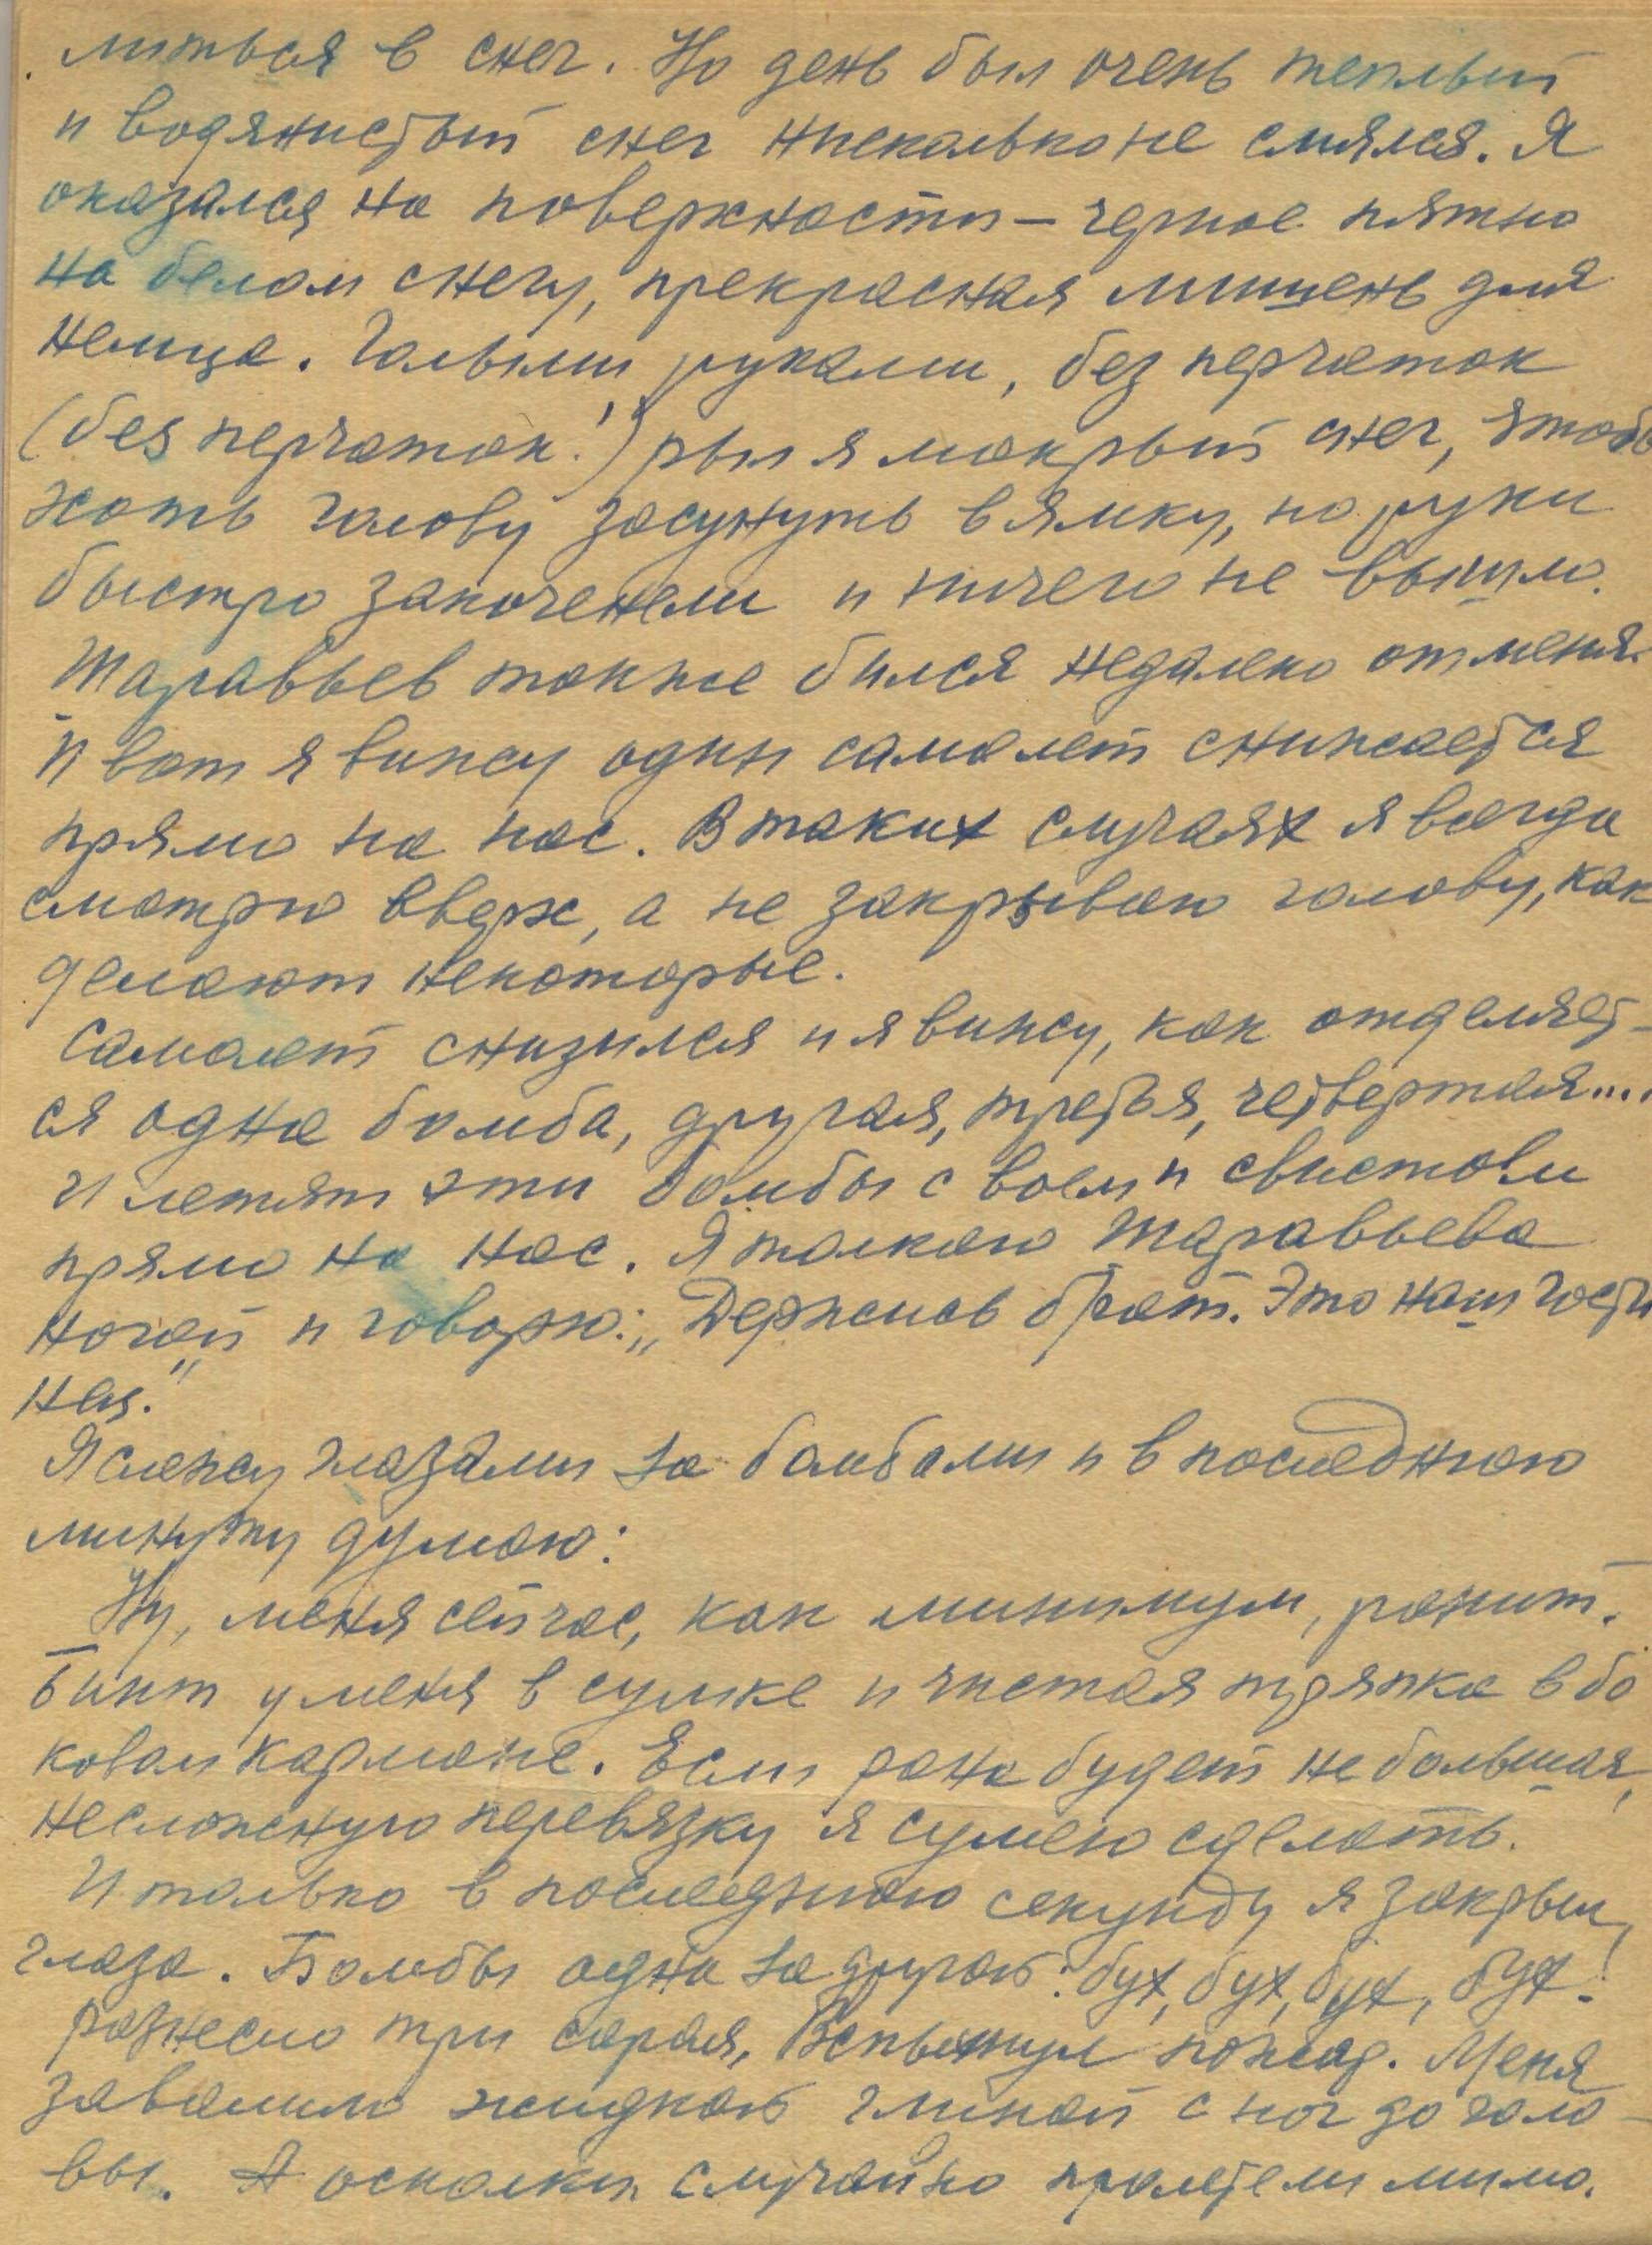 литься в снег. Но день был очень теплый
и водянистый снег нисколько не смялся. Я
оказался на поверхности – черное пятно
на белом снегу, прекрасная мишень для
немца. Голыми руками, без перчаток
(без перчаток!) рыл я мокрый снег, чтобы
хоть голову засунуть в ямку, но руки
быстро закоченели и ничего не вышло.
Таравьев также бился недалеко от меня.
И вот я вижу один самолет снижается
прямо на нас. В таких случаях я всегда
смотрю вверх, а не закрываю голову, как
делают некоторые.
Самолет снизился и я вижу, как отделяет-
ся одна бомба, другая, третья, четвертая....
И летят эти бомбы с воем и свистом
прямо на нас. Я толкаю Таравьева
ногой и говорю: „Держись брат. Это наш гости
нец."
Я слежу глазами за бомбами и в последнюю
минуту думаю:
Ну, меня сейчас, как минимум, ранит.
Бинт у меня в сумке и чистая тряпка в бо
ковом кармане. Если рана будет небольшая,
несложную перевязку я сумею сделать.
И только в последнюю секунду я закрыл
глаза. Бомбы одна за другой: бух, бух, бух, бух!
разнесло три сарая, Вспыхнул пожар. Меня
завалило жидкой глиной с ног до голо-
вы. А осколки случайно пролетели мимо.